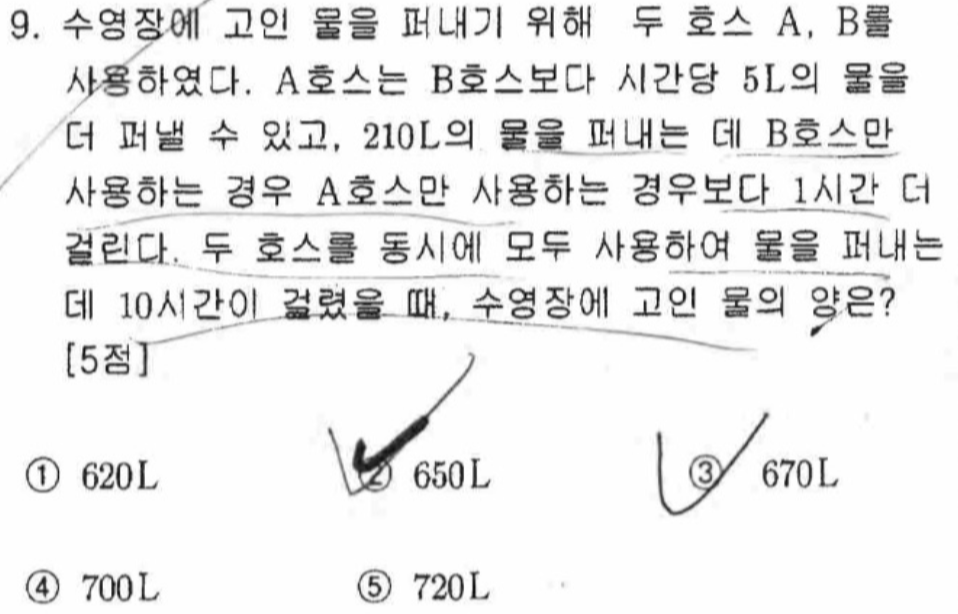 9. 수영장에 고인 물을 퍼내기 위해 두 호스 A, B를
사용하였다. A호스는 B호스보다 시간당 5L의 물을
더 퍼낼 수 있고, 210L의 물을 퍼내는 데 B호스만
사용하는 경우 A호스만 사용하는 경우보다 1시간 더
걸린다. 두 호스를 동시에 모두 사용하여 물을 퍼내는
데 10시간이 걸렸을 때, 수영장에 고인 물의 양은?
[5점]
① 620L ② 650L ③ 670L
④ 700L ⑤ 720L